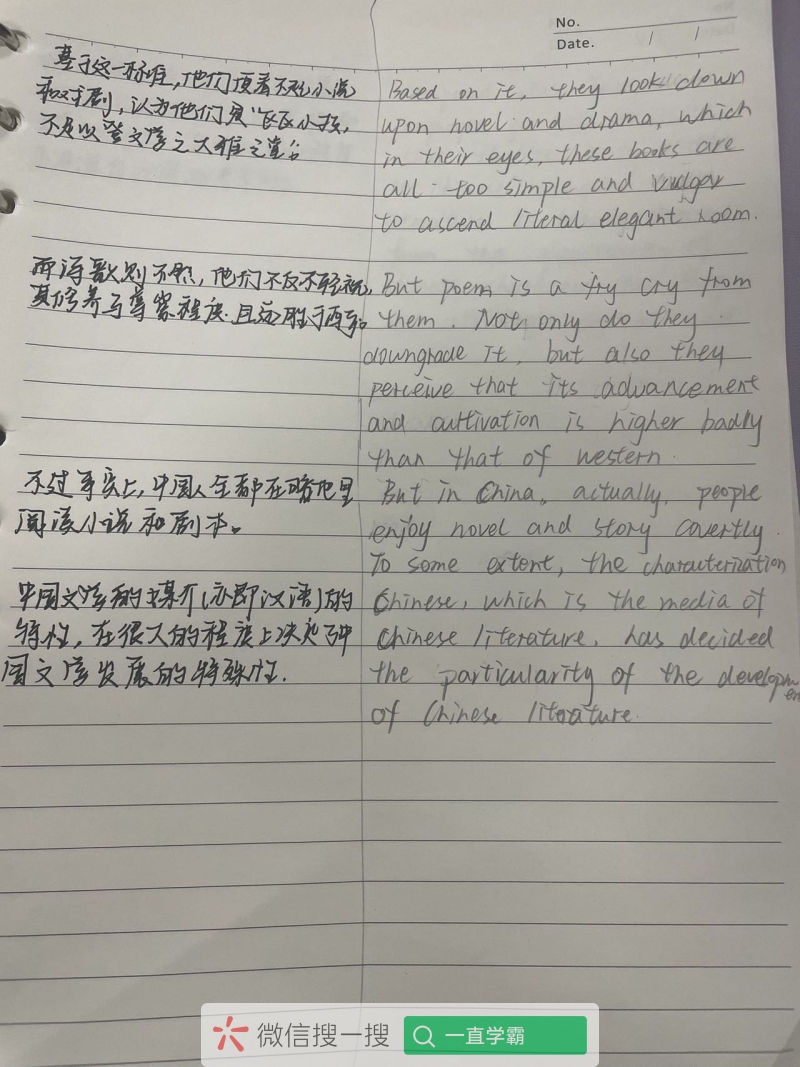 No.
Date. / /
基于这一标准,他们顶看不起小说
和戏剧,认为他们是"区区小技,
不足以登文学之大雅之堂"。
而诗歌则不然,他们不反不轻视,
其修养与 程度.且远胜于西方。
不过事实上,中国人全都在暗地里
阅读小说和剧本。
中国文学的媒介(亦即汉语)的
特性,在很大的程度上决定了中
国文学发展的特殊性.
Based on it, they look down
upon novel and drama, which
in their eyes, these books are
all too simple and vulgar
to ascend literal elegant room.
But poem is a fry cry from
them. Not only do they
downgrade it, but also they
perceive that its advancement
and cultivation is higher badly
than that of western.
But in China, actually, people
enjoy novel and story covertly.
To some extent, the characterization
Chinese, which is the media of
Chinese literature, has decided
the particularity of the developmen
of Chinese literature.
微信搜一搜 一直学霸